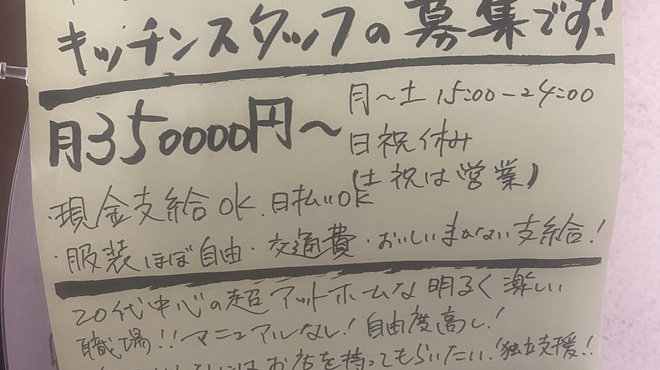 キッチンスタッフの募集です!
月350000円〜
月〜土 15:00-24:00
日祝休み
(土祝は営業)
・現金支給OK、日払いOK
・服装ほぼ自由・交通費・おいしいまかない支給!
20代中心の超アットホームな明るく楽しい
職場!!マニュアルなし!自由度高し!
はお店を持ってもらいたい!独立支援!!